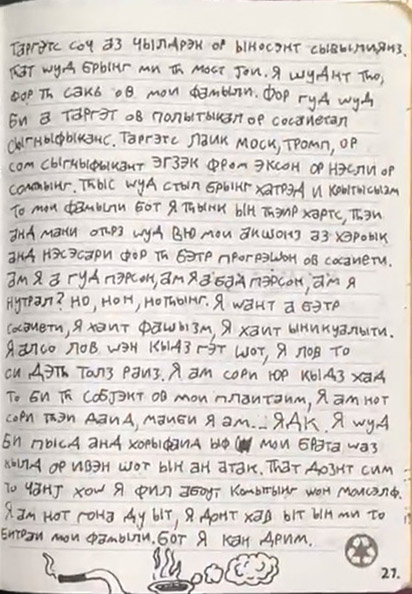 Таргэтс соч аз чылдрэн ор ыносэнт сывылияиз.
Тhат шуд брынг ми тh мост јои. Я шудит тhо,
фор тh сакэ ов мои фамыли. фор гуд шуд
би а таргэт ов полытыкал ор сосаиетал
сыгныфыканс. Таргэтс лаик моск, тромп, ор
сом сыгныфыкант эгзэк фром эксон ор нэсли ор
сомтhынг. Тhыс шуд стыл брынг хатрэд и крытысызм
то мои фамыли бот Я тhынк ын тhэир хартс, тhэи
анд мани отhрз шуд вю мои акшонз аз хэроык
анд нэсэсари фор тh бэтр прогрэшон ов сосаиети.
ам Я а гуд пэрсон, ам Я а бад пэрсон, ам Я
нутрал? но, нон, нотhынг. Я шант а бэтр
сосаиети, Я хаит фашызм, Я хаит ыникуалыти.
Я алсо лов шэн кыдз гэт шот, Я лов то
си дэтh толз раиз. Я ам сори юр кыдз хад
то би тh собјэкт ов мои плаитаим, Я ам нот
сори тhэи даид, маиби Я ам... ЯДК. Я шуд
би пысд анд хорыфаид ыф мои брата шаз
кылд ор ивэн шот ын ан атак. Тhат дознт сим
то чанј хош Я фил абоут комытынг шон моисэлф.
Я ам нот гона ду ыт, Я донт хав ыт ын ми то
битраи мои фамыли. бот Я кан дрим.
27.